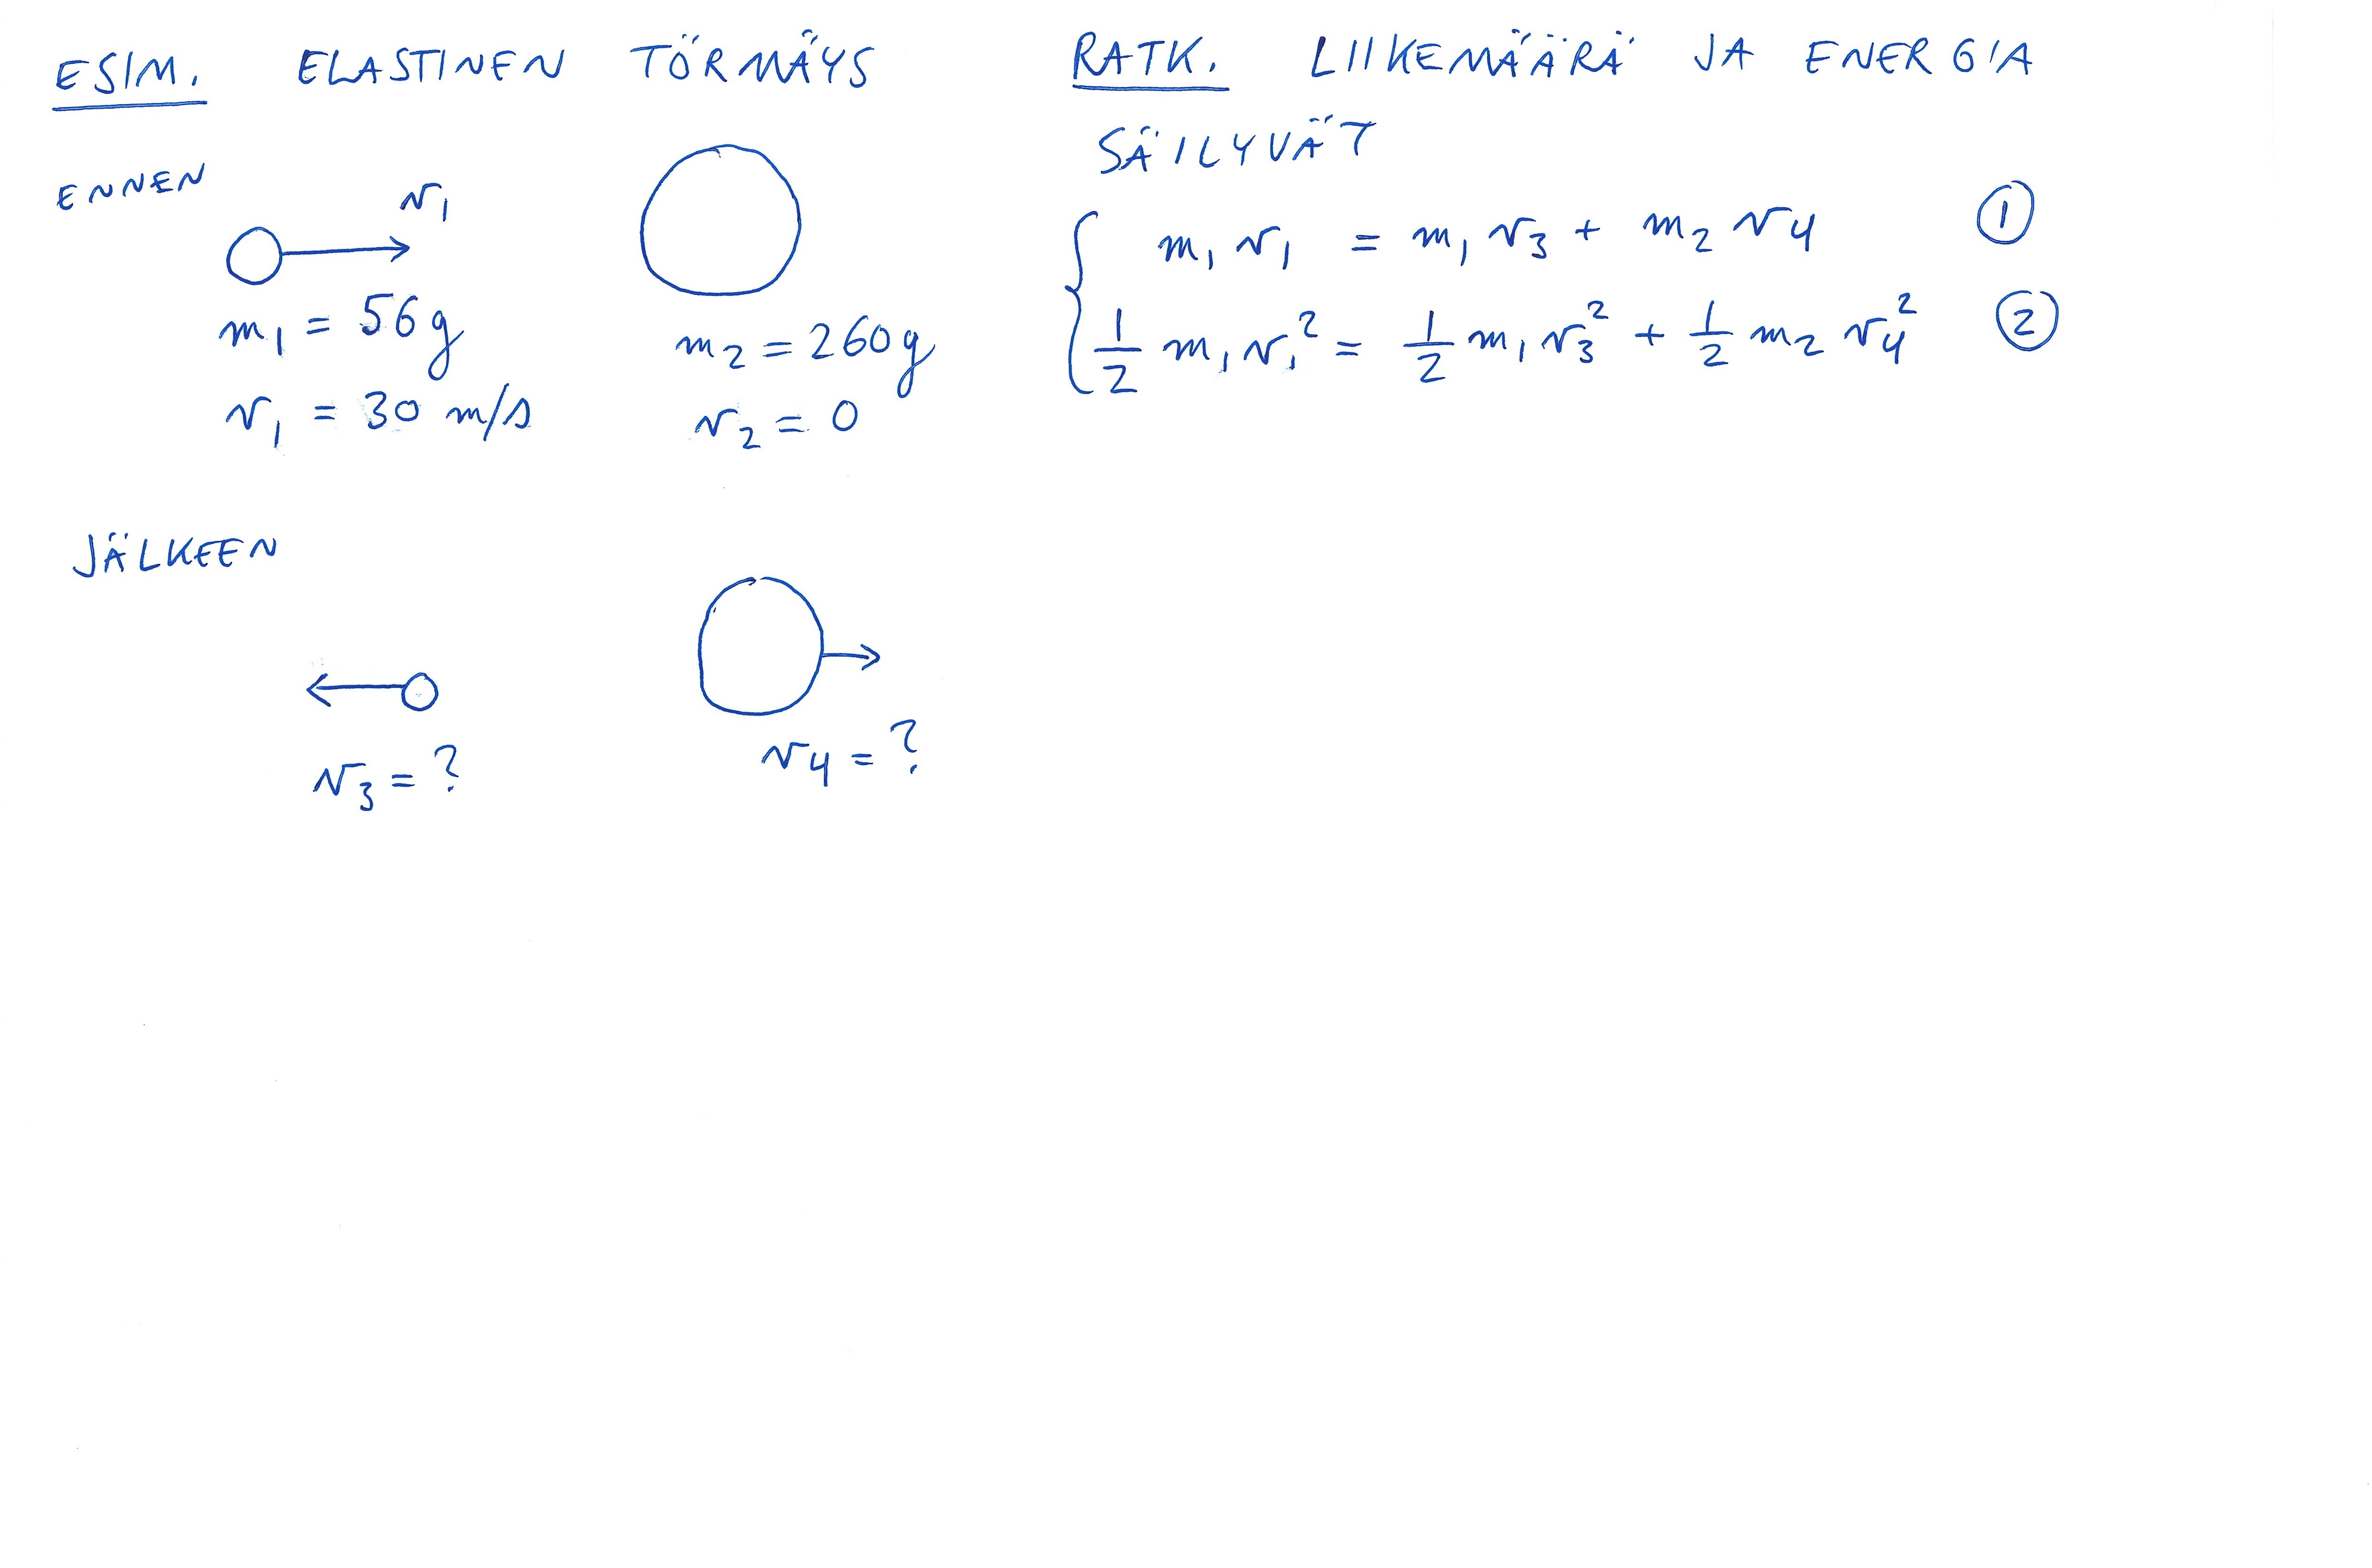 ESIM. ELASTINEN TÖRMÄYS
ENNEN
v₁
m₁ = 56 g
v₁ = 30 m/s
m₂ = 260 g
v₂ = 0
JÄLKEEN
v₃ = ?
v₄ = ?
RATK. LIIKEMÄÄRÄ JA ENERGIA
SÄILYVÄT
{ m₁ v₁ = m₁ v₃ + m₂ v₄ ①
½ m₁ v₁² = ½ m₁ v₃² + ½ m₂ v₄² ②